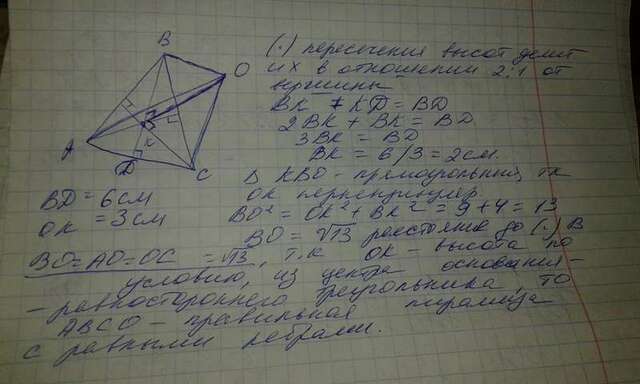 (·) пересечения высот делит
их в отношении 2:1 от
вершины
BK + KD = BD
2BK + BK = BD
3BK = BD
BK = 6/3 = 2см.
Δ KBO - прямоугольный, тк
OK перпендикуляр.
BO² = OK² + BK² = 9+4 = 13
BO = √13 расстояние до (·) B
B
O
A
K
D
C
BD = 6см
OK = 3см
BO=AO=OC = √13, т.к OK - высота по
условию, из центра основания-
- равностороннего треугольника, то
ABCO - правильная пирамида
с равными ребрами.